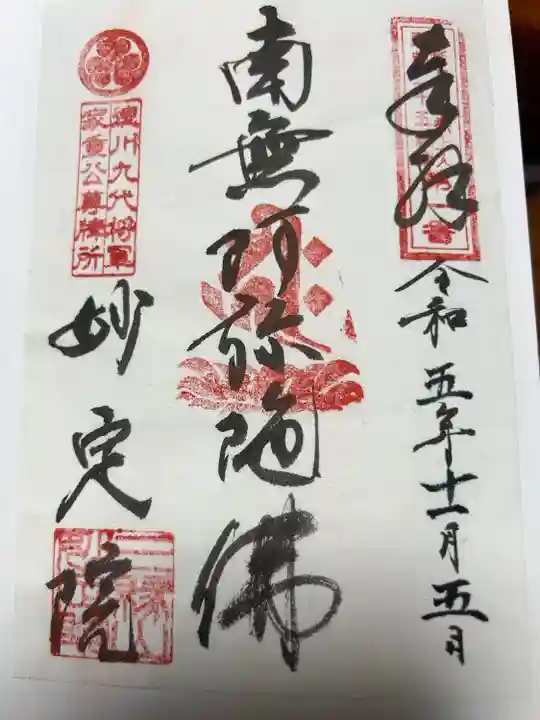 奉拝
令和五年十一月五日
南無阿弥陀佛
徳川九代将軍
家重公尊牌所
妙定院